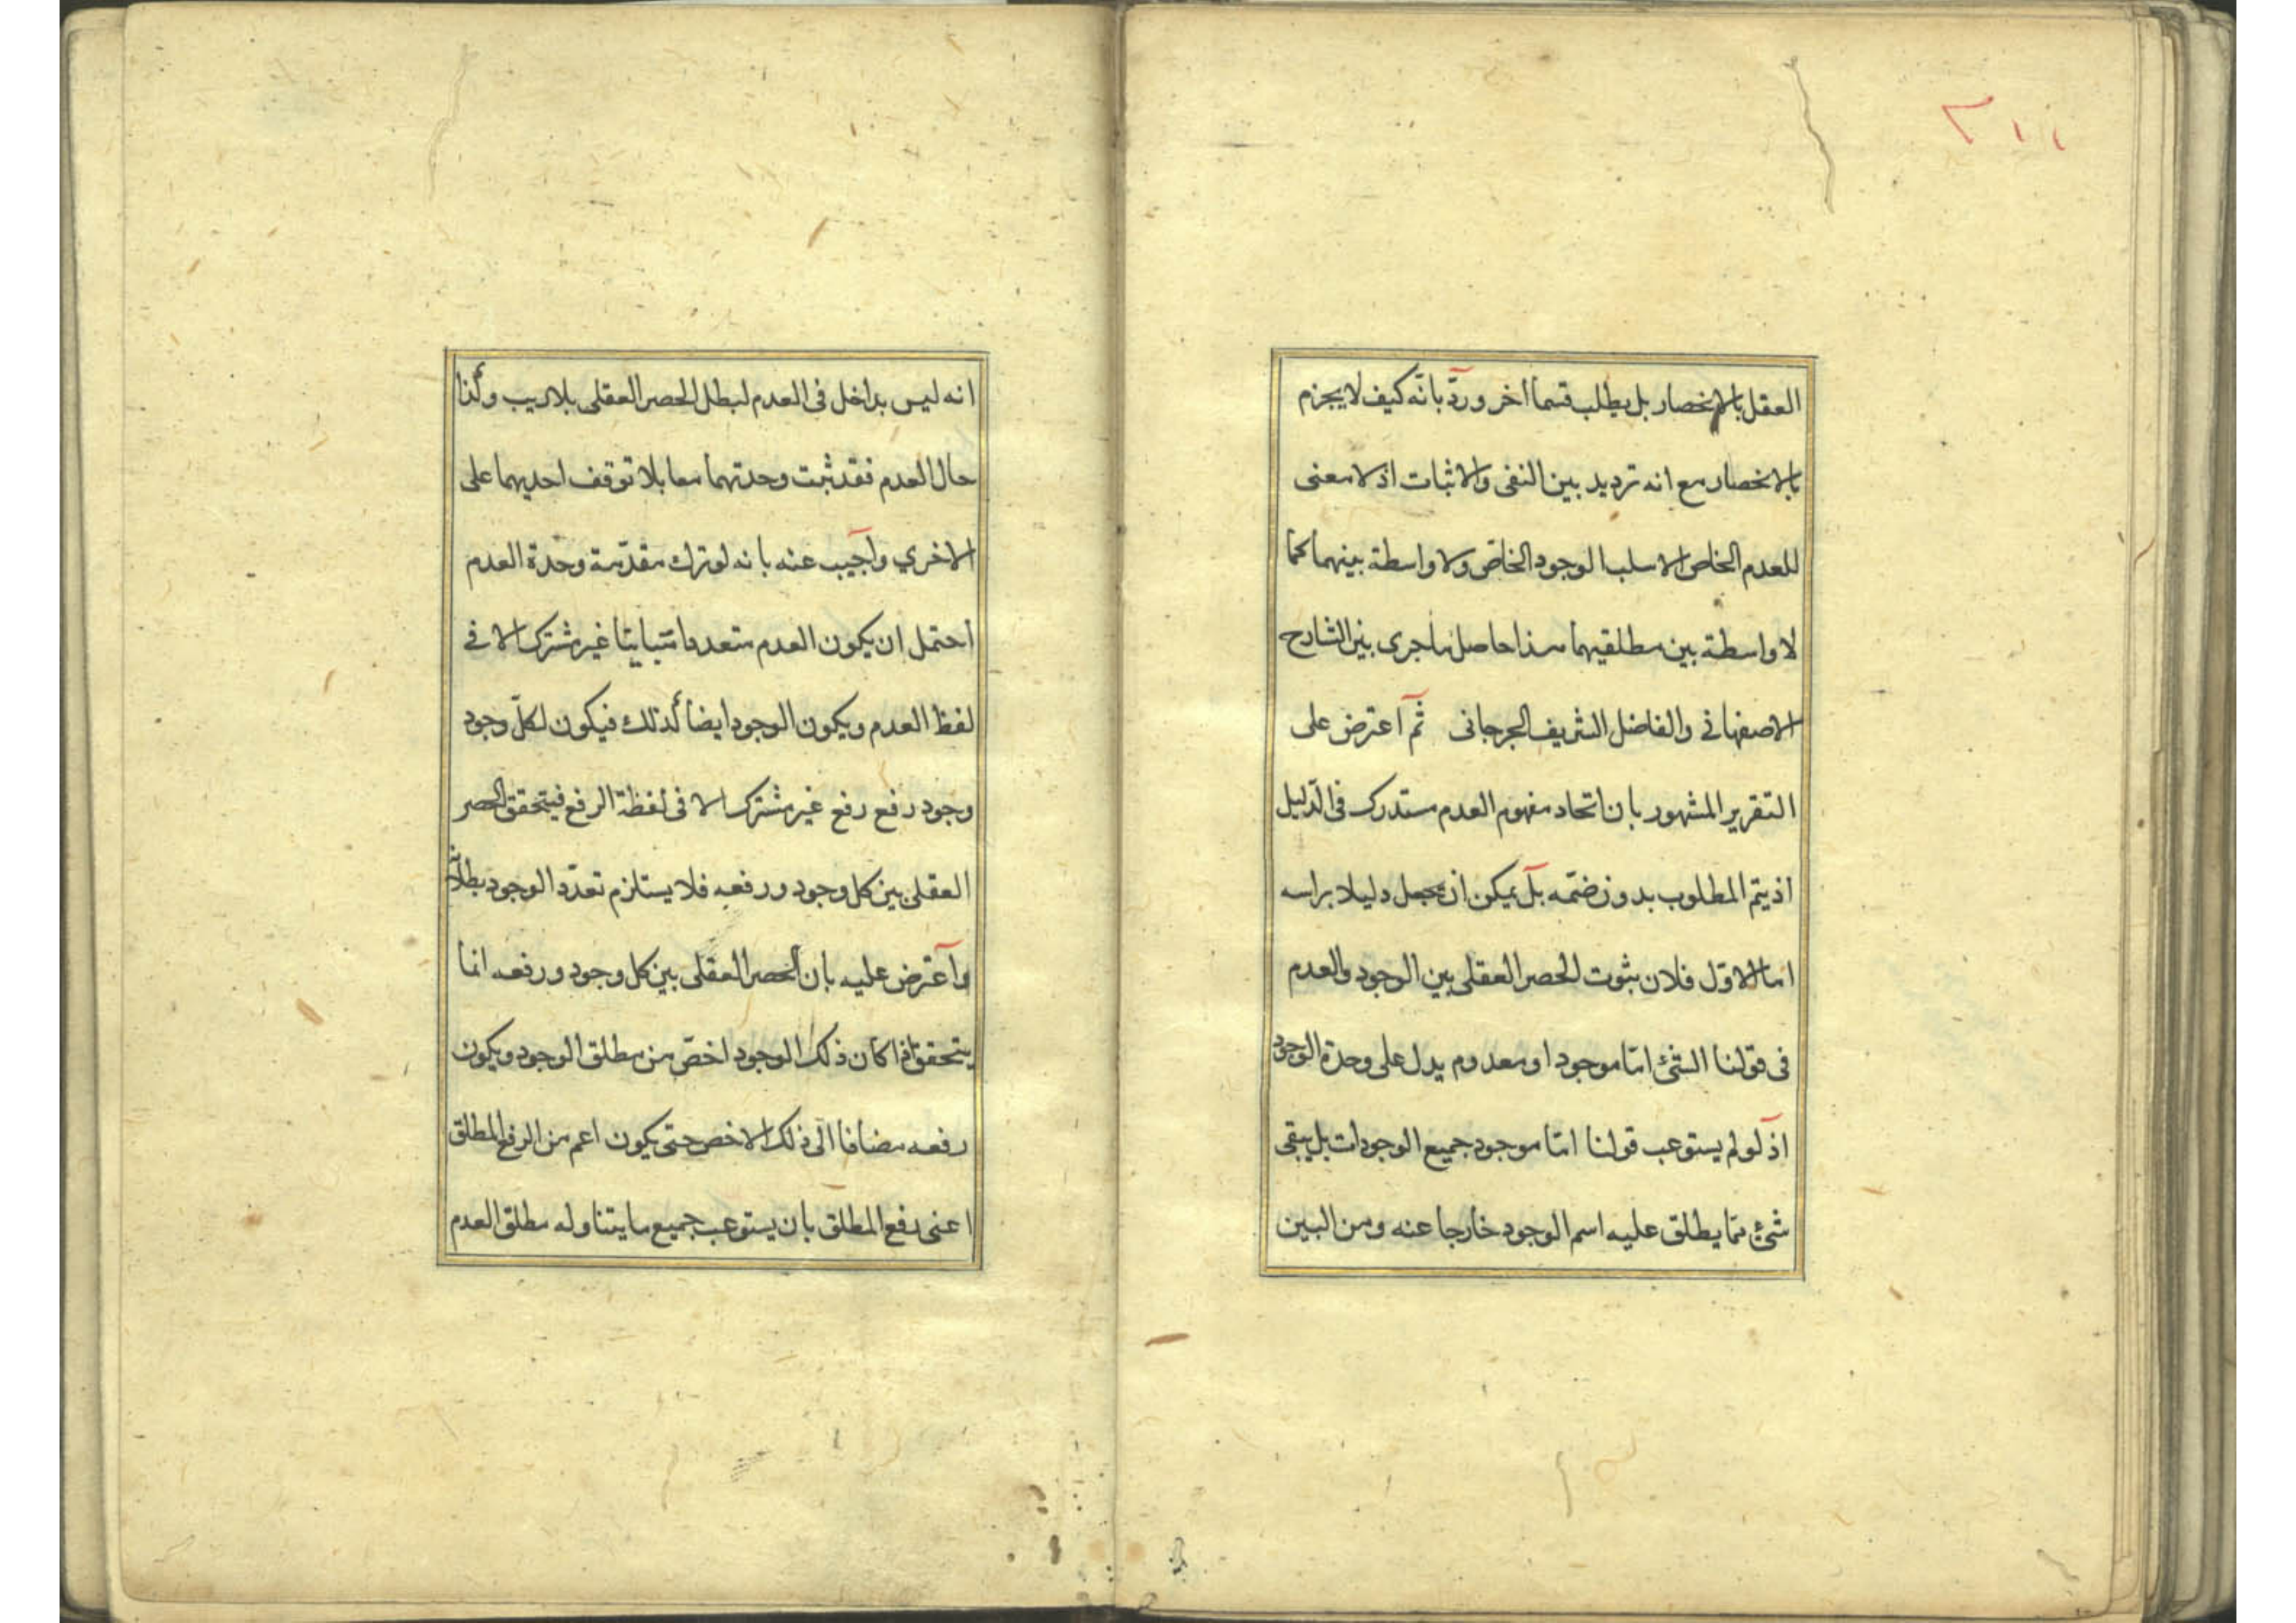 العقل بالانحصار بل يطلب قسما آخر وردّ بانّه كيف لا يجزم
بالانحصار مع انه ترديد بين النفى والاثبات اذ لا معنى
للعدم الخاص الا سلب الوجود الخاصّ ولا واسطة بينهما كما
لا واسطة بين مطلقيهما هذا حاصل ما جرى بين الشارح
الاصفهانى والفاضل الشريف الجرجانى ثم اعترض على
التقرير المشهور بان اتحاد مفهوم العدم مستدرك فى الدّليل
اذ يتم المطلوب بدون ضمّه بل يمكن ان يجعل دليلا براسه
اما الاوّل فلان ثبوت الحصر العقلى بين الوجود والعدم
فى قولنا الشئ امّا موجود او معدوم يدل على وحدة الوجود
اذ لو لم يستوعب قولنا امّا موجود جميع الوجودات بل يبقى
شئ ممّا يطلق عليه اسم الوجود خارجا عنه ومن البين
انه ليس بداخل فى العدم لبطل الحصر العقلى بلا ريب وكذا
حال العدم فقد ثبت وحدتهما معا بلا توقف احديهما على
الاخرى واجيب عنه بانه لو ترك مقدّمة وحدة العدم
احتمل ان يكون العدم متعددا متباينا غير مشترك الا فى
لفظ العدم ويكون الوجود ايضا كذلك فيكون لكلّ وجود
وجود رفع رفع غير مشترك الا فى لفظة الرفع فيتحقق الحصر
العقلى بين كل وجود ورفعه فلا يستلزم تعدّد الوجود بطلانه
واعترض عليه بان الحصر العقلى بين كل وجود ورفعه انما
يتحقق اذا كان ذلك الوجود اخصّ من مطلق الوجود ويكون
رفعه مضافا الى ذلك الاخص حتى يكون اعم من الرفع المطلق
اعنى رفع المطلق بان يستوعب جميع ما يتناوله مطلق العدم